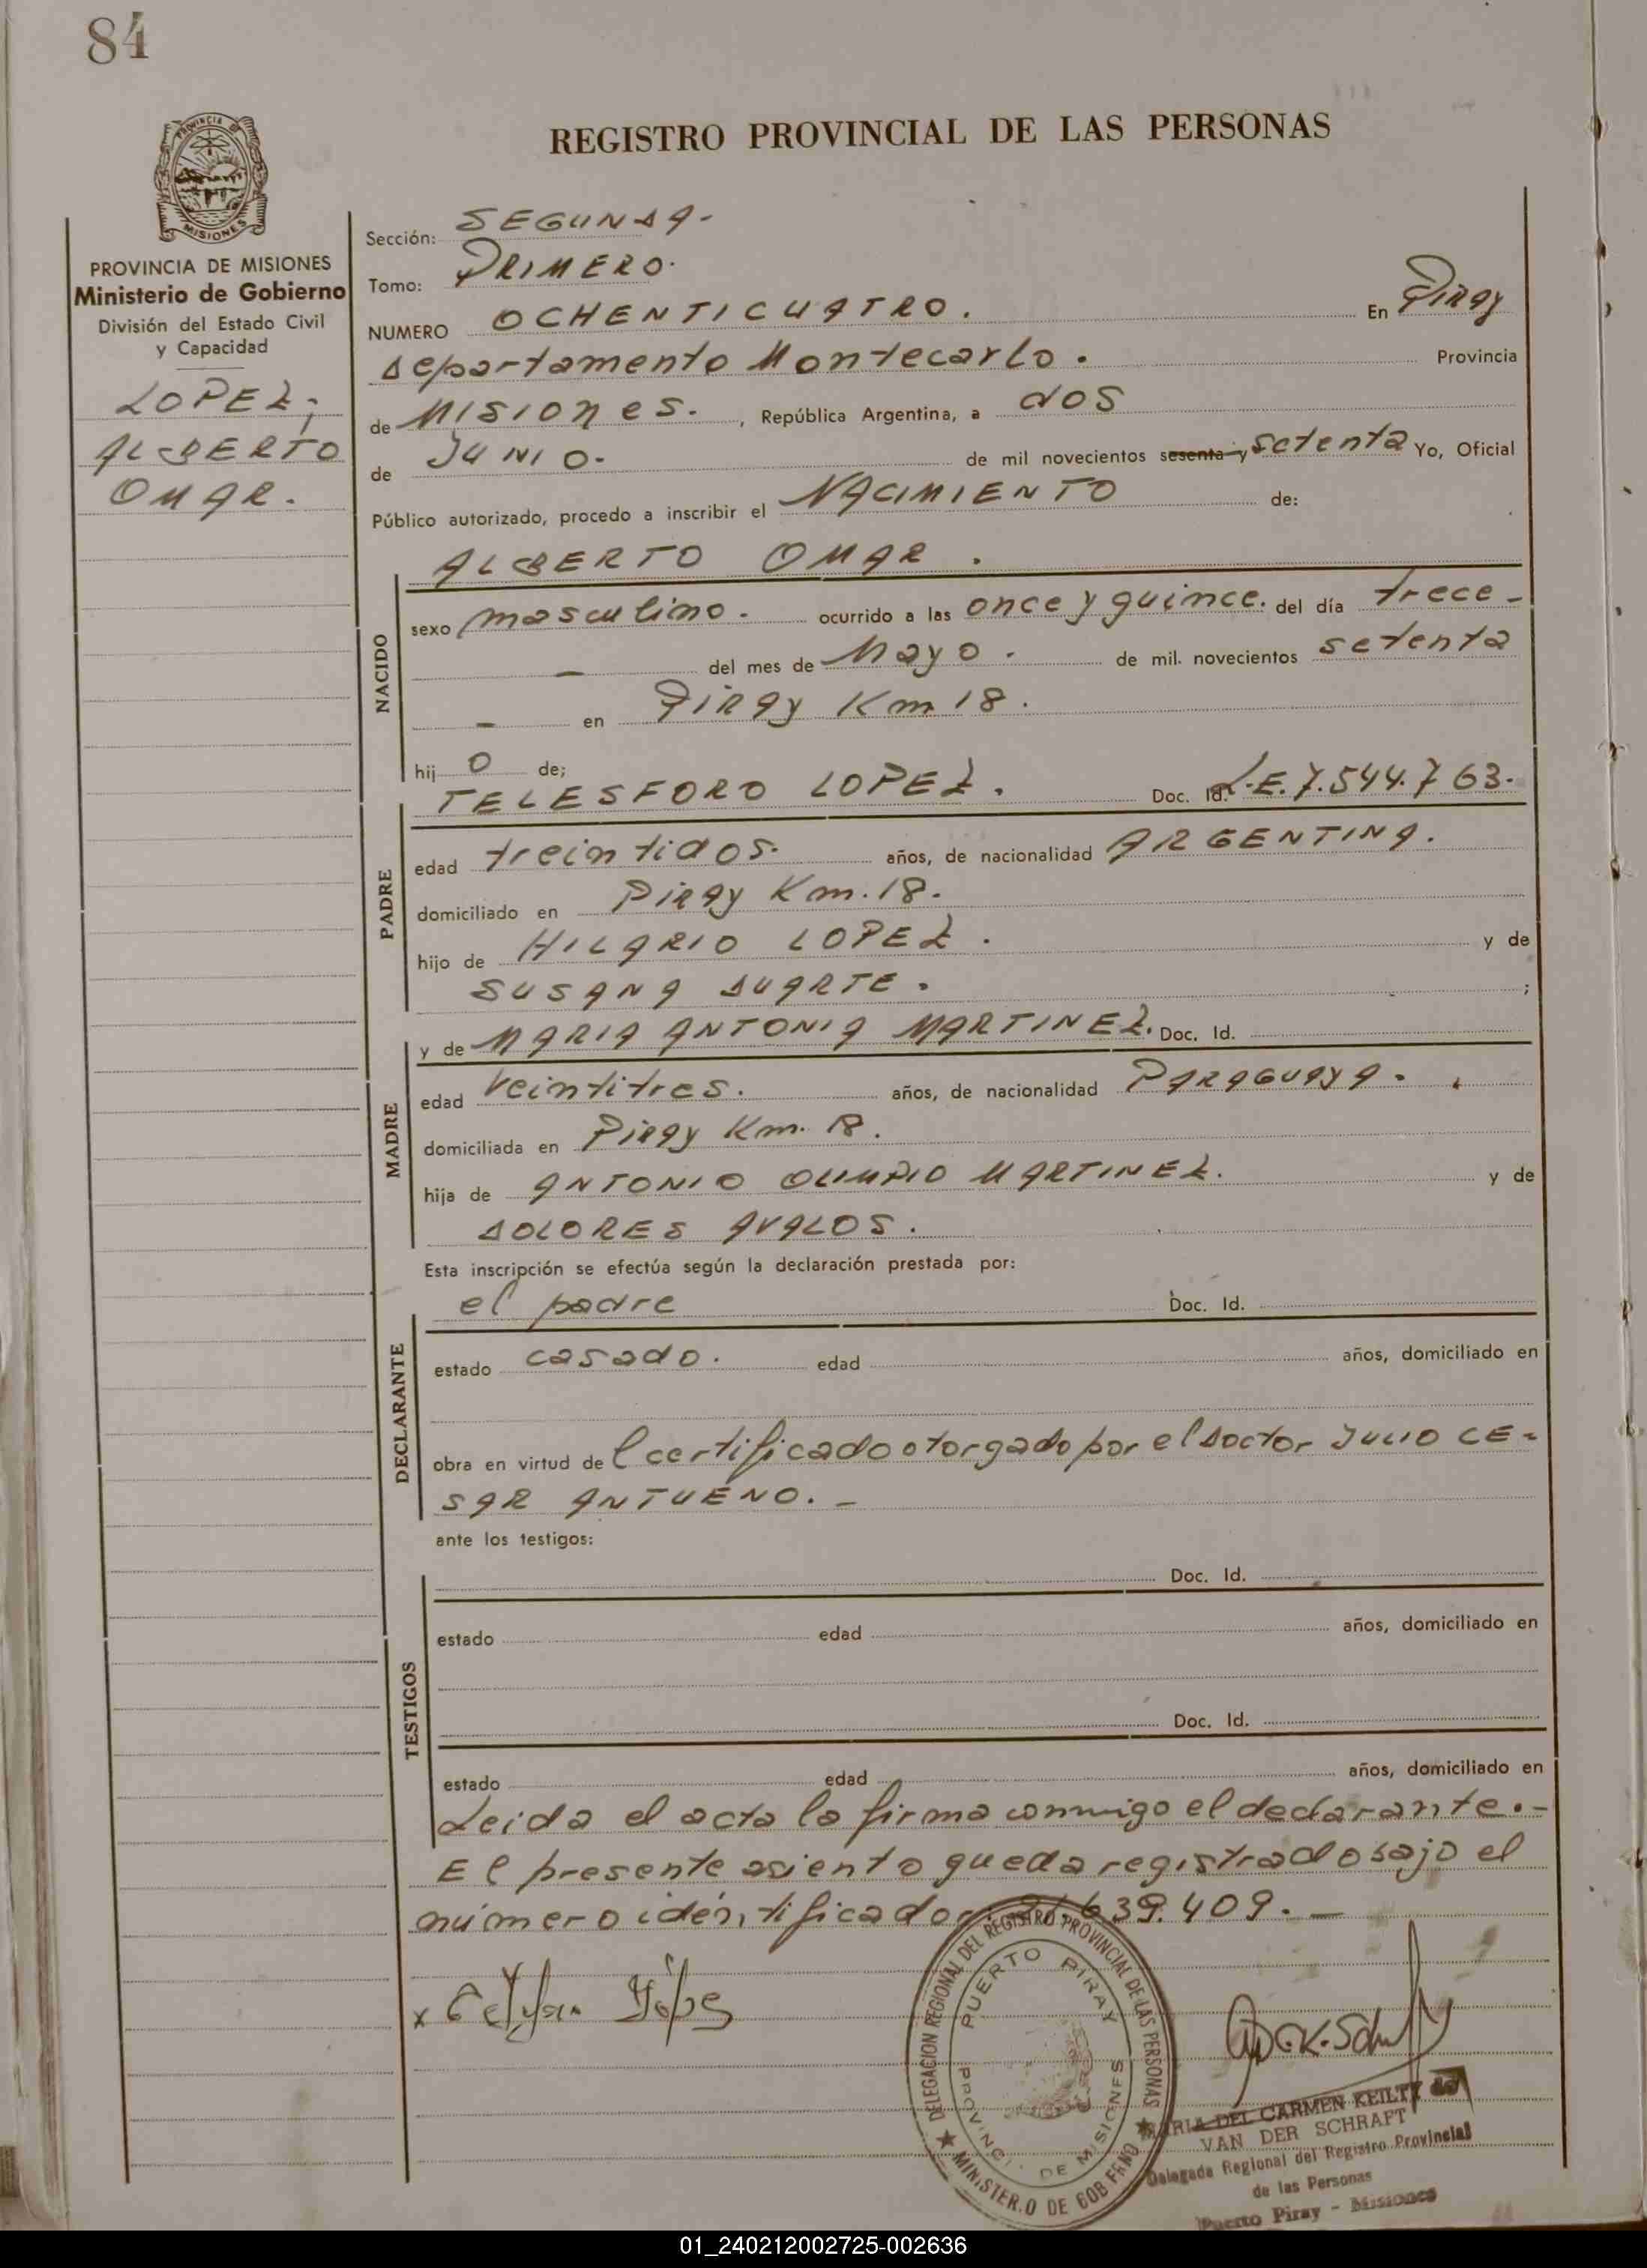 84
REGISTRO PROVINCIAL DE LAS PERSONAS
PROVINCIA DE MISIONES
PROVINCIA DE MISIONES
Ministerio de Gobierno
División del Estado Civil
y Capacidad
LOPEZ,
ALBERTO
OMAR.
Sección: SEGUNDA-
Tomo: PRIMERO.
NUMERO OCHENTICUATRO. En Piray
departamento Montecarlo. Provincia
de Misiones. , República Argentina, a dos
de Junio. de mil novecientos sesenta y setenta Yo, Oficial
Público autorizado, procedo a inscribir el NACIMIENTO de:
ALBERTO OMAR.
NACIDO
sexo masculino. ocurrido a las once y quince. del día trece-
— del mes de Mayo. de mil novecientos setenta
- en Piray Km 18.
hij o de;
TELESFORO LOPEZ. Doc. Id. L.E. 7.544.763.
PADRE
edad treintidos. años, de nacionalidad ARGENTINA.
domiciliado en Piray Km. 18.
hijo de HILARIO LOPEZ. y de
SUSANA DUARTE. ;
y de MARIA ANTONIA MARTINEZ. Doc. Id.
MADRE
edad veintitres. años, de nacionalidad PARAGUAYA.
domiciliada en Piray Km. 18.
hija de ANTONIO OLIMPIO MARTINEZ. y de
DOLORES AVALOS.
Esta inscripción se efectúa según la declaración prestada por:
el padre Doc. Id.
DECLARANTE
estado casado. edad años, domiciliado en
obra en virtud de l certificado otorgado por el Doctor JULIO CE=
SAR ANTUENO. —
ante los testigos:
Doc. Id.
TESTIGOS
estado edad años, domiciliado en
Doc. Id.
estado edad años, domiciliado en
Leida el acta la firma conmigo el declarante.-
El presente asiento queda registrado bajo el
número identificador: 639.409. —
x López
DELEGACION REGIONAL DEL REGISTRO PROVINCIAL DE LAS PERSONAS
PUERTO PIRAY
DE MISIONES
MINISTERIO DE GOBIERNO
MARIA DEL CARMEN KEILTY de
VAN DER SCHRAFT
Delegada Regional del Registro Provincial
de las Personas
Puerto Piray - Misiones
01_240212002725-002636